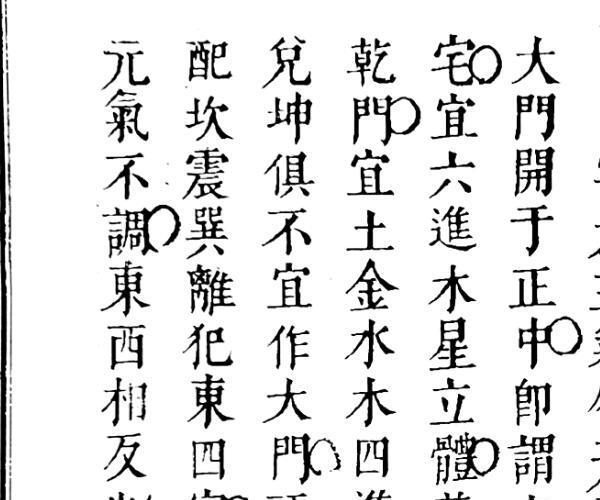 大門開于正中○卽謂
宅○宜六進木星立體○
乾門○宜土金水木四
兌坤俱不宜作大門○
配坎震巽離犯東四
元氣不調○東西相反